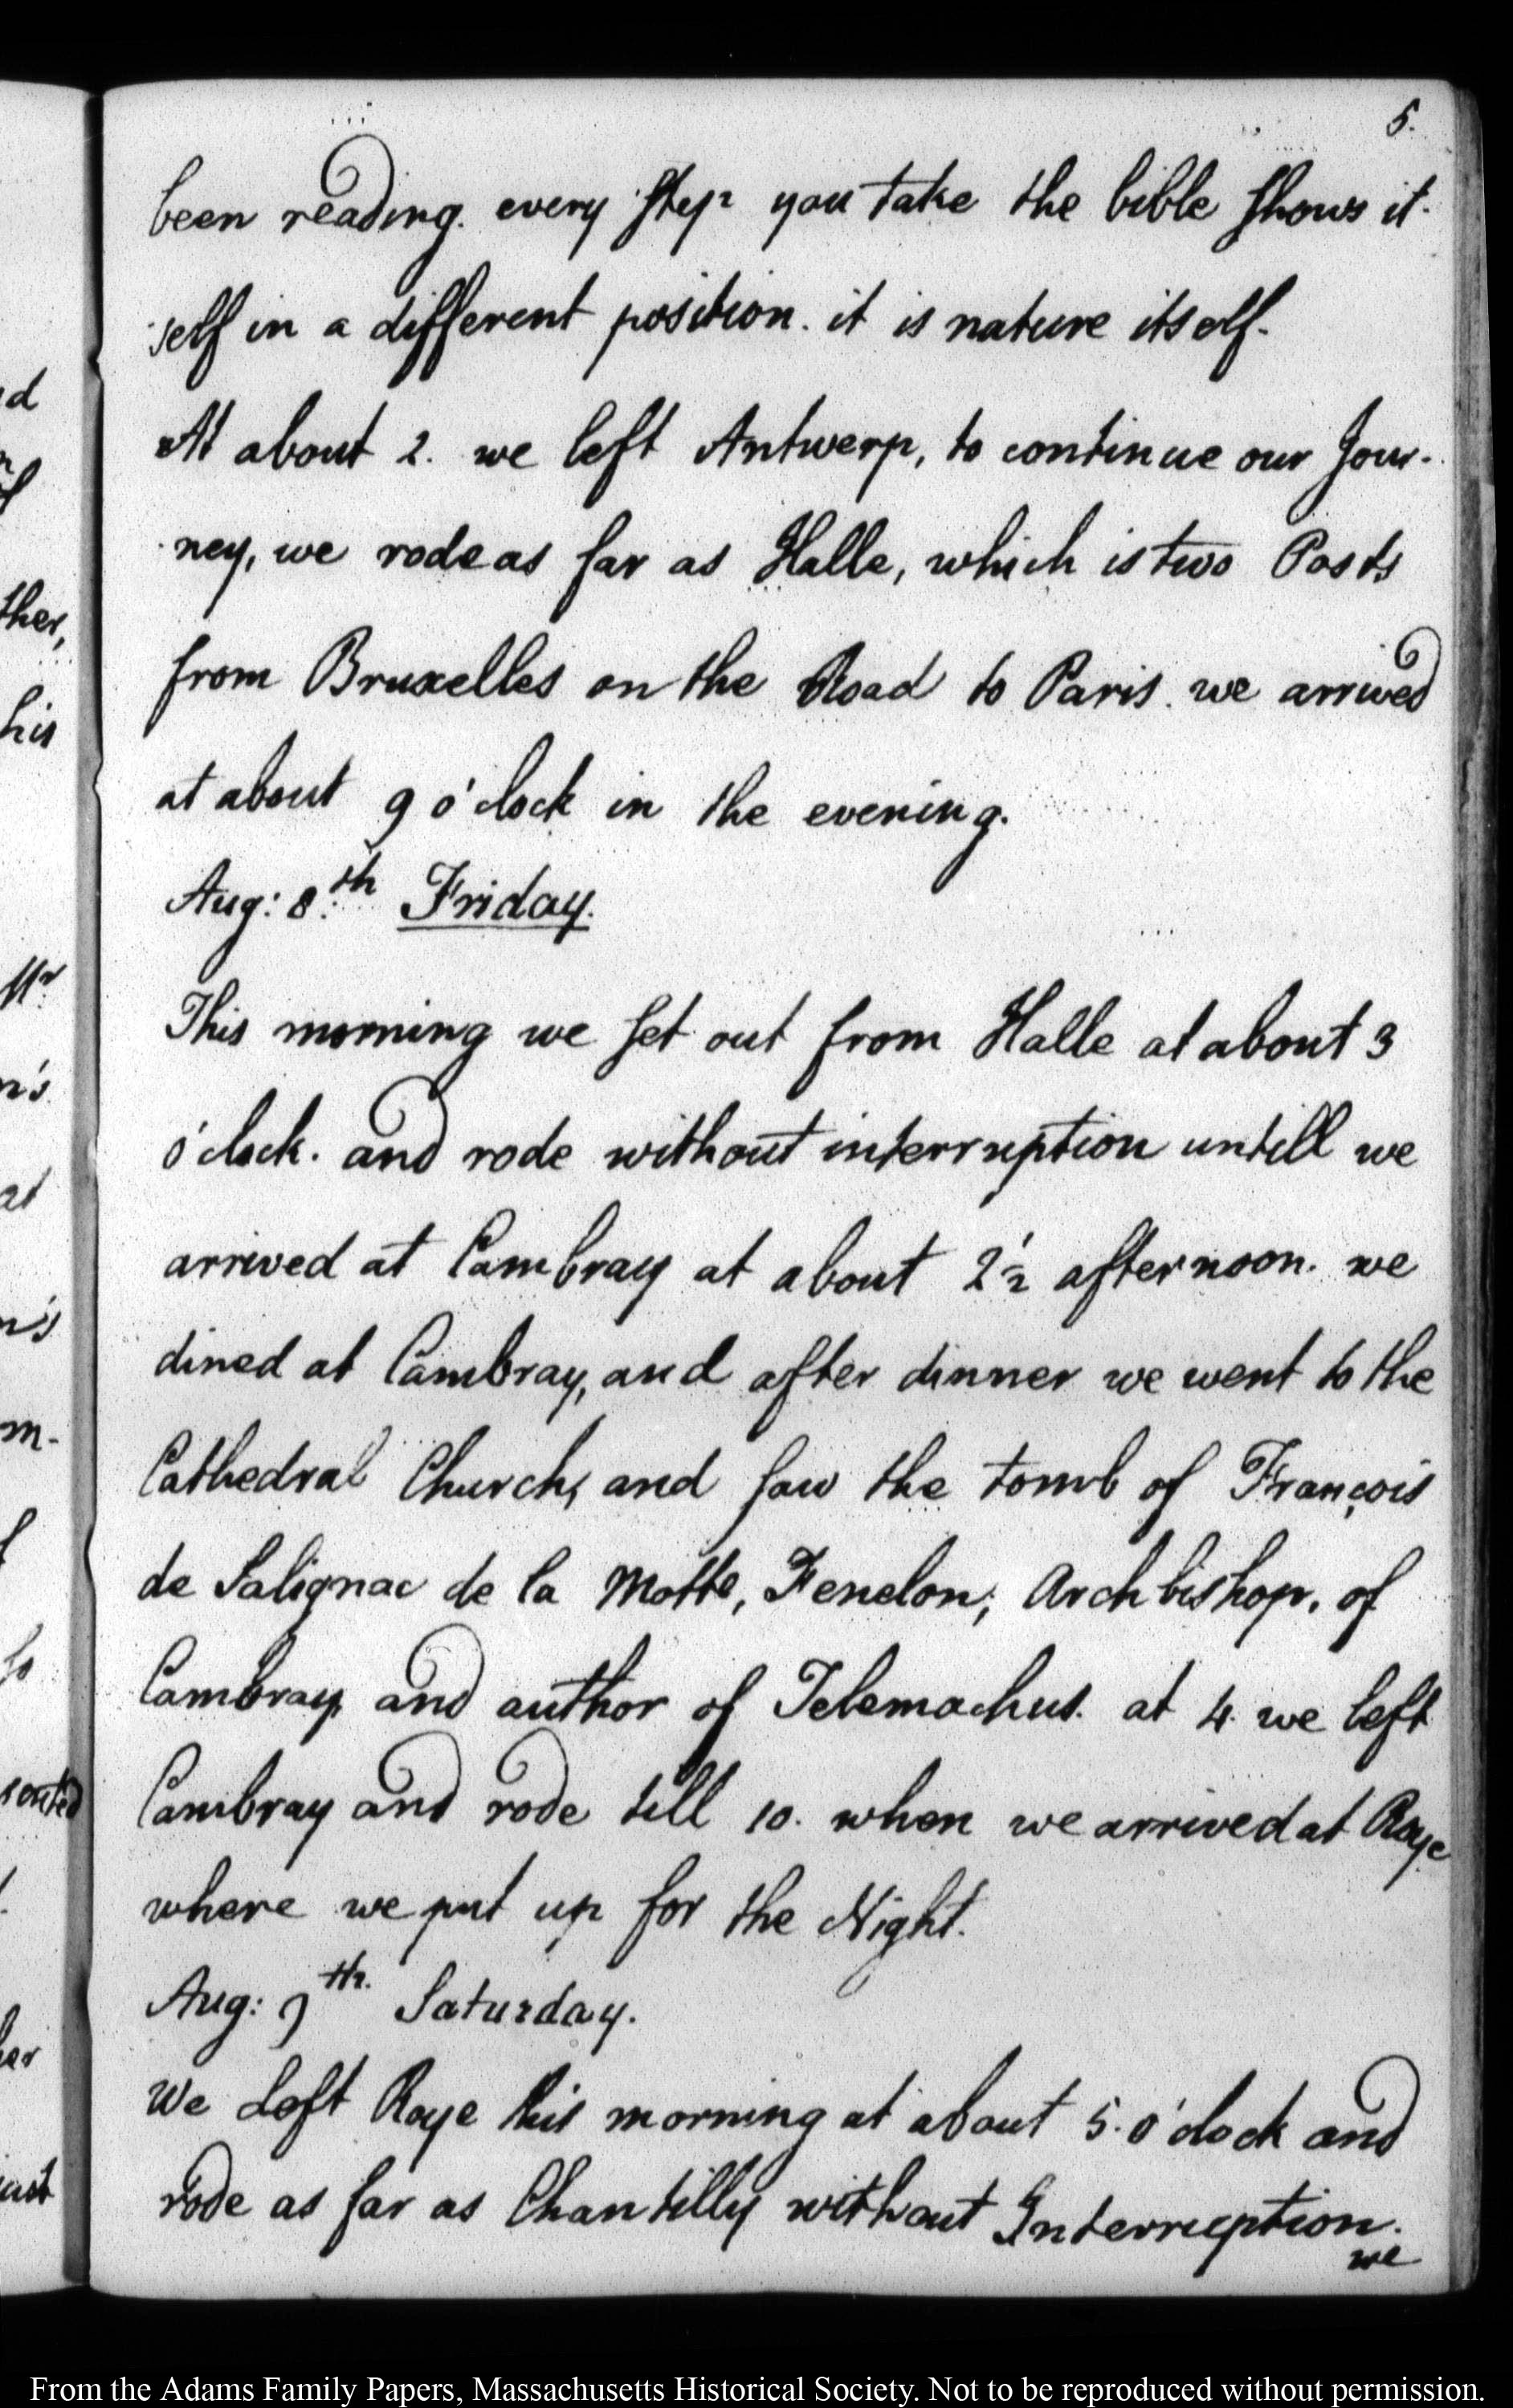 5.
been reading. every step you take the bible shows it-
self in a different position. it is nature itself.
At about 2. we left Antwerp, to continue our Jour-
ney, we rode as far as Halle, which is two Posts
from Bruxelles on the Road to Paris. we arrived
at about 9 o'clock in the evening.
Aug: 8.th Friday.
This morning we set out from Halle at about 3
o'clock. and rode without interruption untill we
arrived at Cambray at about 2 1/2 afternoon. we
dined at Cambray, and after dinner we went to the
Cathedral Church, and saw the tomb of François
de Salignac de la Motte, Fenelon; Archbishop, of
Cambray, and author of Telemachus. at 4. we left
Cambray and rode till 10. when we arrived at Roye
where we put up for the Night.
Aug: 9th. Saturday.
We Left Roye this morning at about 5. o'clock and
rode as far as Chantilly without Interruption.
we
d
ther,
his
Mr
n's
at
n's
m-
so
sented
her
From the Adams Family Papers, Massachusetts Historical Society. Not to be reproduced without permission.